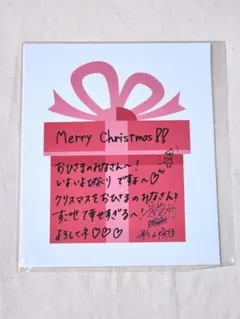 Merry Christmas!!
おひさまのみなさんへ!
いよいよひなくり ですよ〜
クリスマスをおひさまのみなさんと
すごせて幸せすぎる〜!
よろしくネ♡♡♡